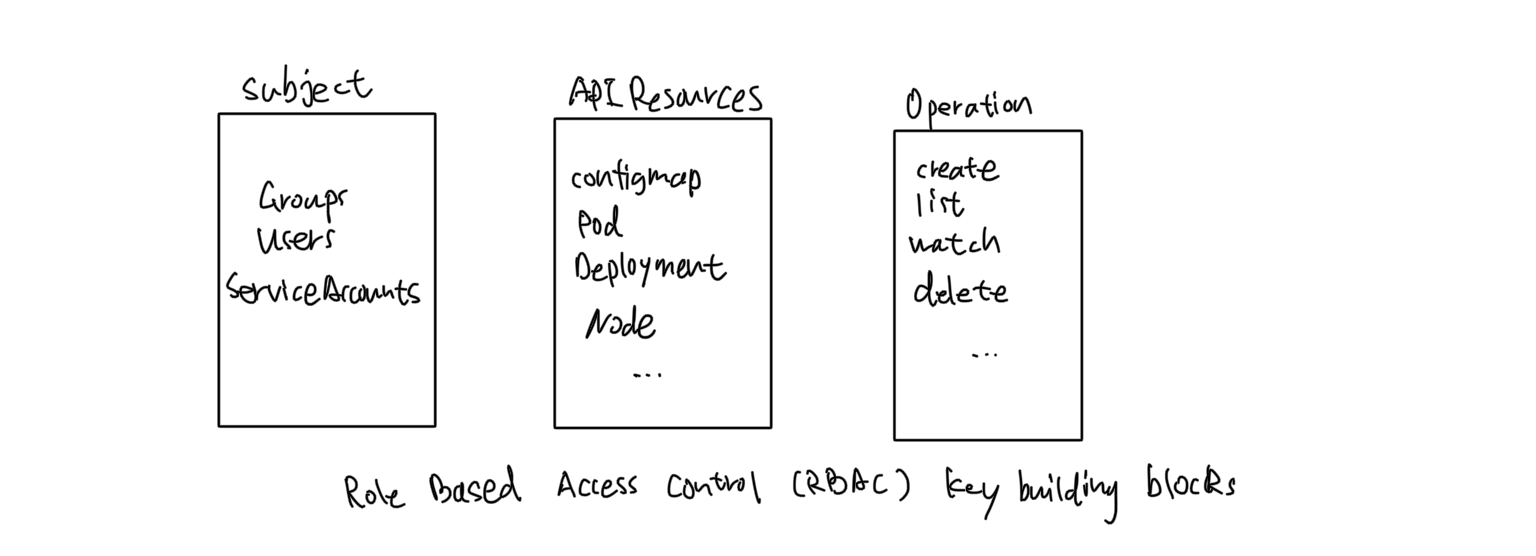 subject
Groups
Users
ServiceAccounts
API Resources
configmap
Pod
Deployment
Node
...
Operation
create
list
watch
delete
...
Role Based Access Control (RBAC) key building blocks